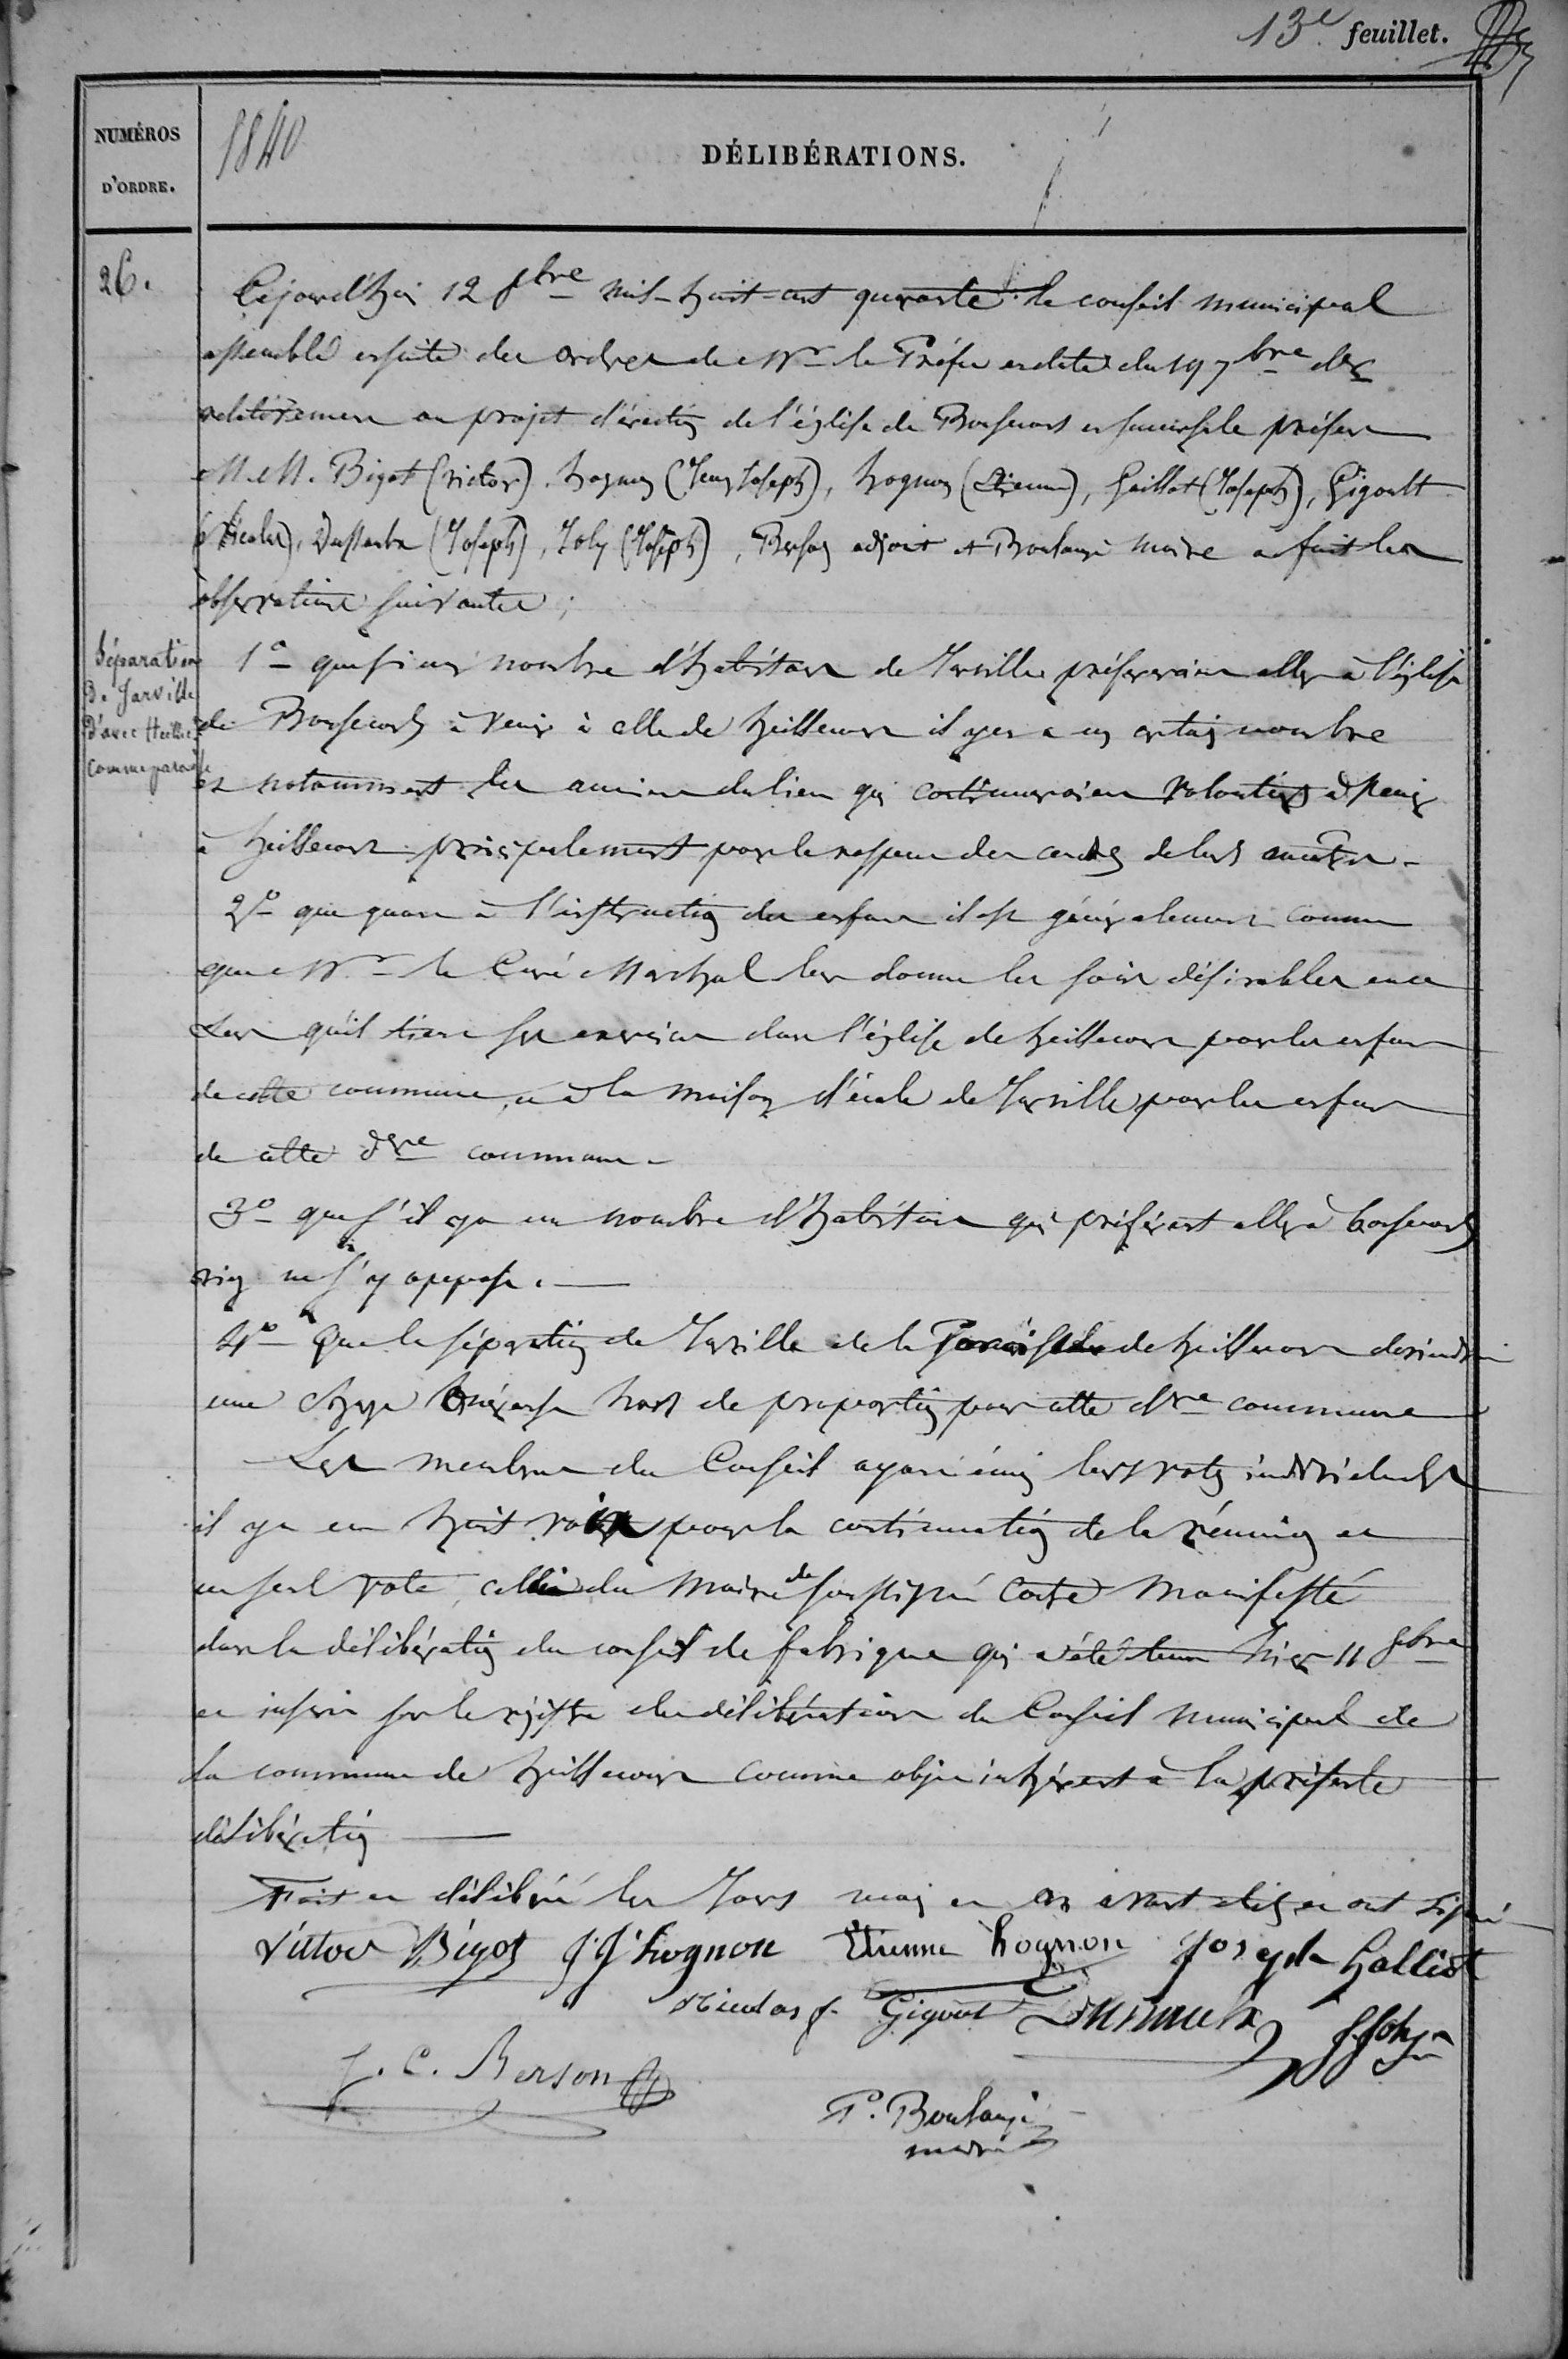 13e feuillet.
NUMÉROS
D'ORDRE.
1840
DÉLIBÉRATIONS.
26.
Cejourd'hui 12 8bre mil-huit-cent quarante le conseil municipal
assemblé ensuite des ordres de Mr le Préfet en date du 19 7bre der
relativement au projet d'érection de l'église de Bonsecours en succursale présens
M.M. Bigot (Victor), hognon (Jean Joseph), hognon (Etienne), Galliot (Joseph), Gigoult
(Nicolas), (Joseph), Joly (Joseph), Berson adjoint et Boulangé maire a fait les
observations suivantes ;
Séparation
De Jarville
D'avec Heille
comme paroisse
1o que si un nombre d'habitans de Jarville préfereraient aller à l'église
de Bonsecours à venir à celle de heillecourt il y en a un certain nombre
et notamment les anciens du lieu qui continueraient volontiers à venir
à heillecourt principalement pour le respect des cendres de leurs ancêtres -
2o que quant à l'instruction des enfans il est généralement connu
que Mr le Curé Marchal leur donne les soins désirables en ce
sens qu'il tient ses exercices dans l'église de heillecourt pour les enfans
de cette commune, et à la maison d'école de Jarville pour les enfans
de cette dere commune -
3o que s'il y a un nombre d'habitans qui préférent aller à bonsecours
rien ne s'y oppose. —
4o Que la séparation de Jarville de la Paroisse de heillecourt deviendrait
une charge onéreuse hors de proportion pour cette dre commune
Les membres du Conseil ayant émis leurs votes individuels
il y a eu huit voix pour la continuation de la réunion et
un seul vote, celui du Maire soussigné contre manifesté
dans la délibération du conseil de fabrique qui a été tenu hier 11 8bre
et inséré sur le registre des délibérations du Conseil municipal de
la commune de heillecourt comme objet inhérent à la présente
délibération —
Fait et délibéré les Jours mois et an avant dits et ont signé
Victor Bigot J J hognon Etienne hognon Joseph Galliot
Nicolas J. Gigoult J Joly
J. C. Berson
P. Boulangé
maire